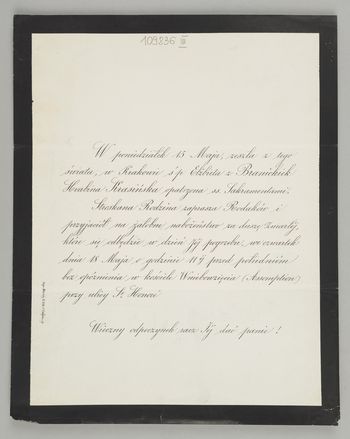 109836 III
W poniedziałek 15 Maja, zeszła z tego
świata, w Krakowie ś.p. Elżbieta z Branickich
Hrabina Krasińska opatrzona ss. Sakramentami.
Stroskana Rodzina zaprasza Rodaków i
przyjaciół na żałobne nabożeństwo za duszę Zmarłéj,
które się odbędzie w dzień Jéj pogrzebu, we czwartek
dnia 18 Maja o godzinie 11¼ przed południem
bez opóźnienia, w kościele Wniebowzięcia (Assomption)
przy ulicy St. Honoré
Wieczny odpoczynek racz Jéj dać panie !